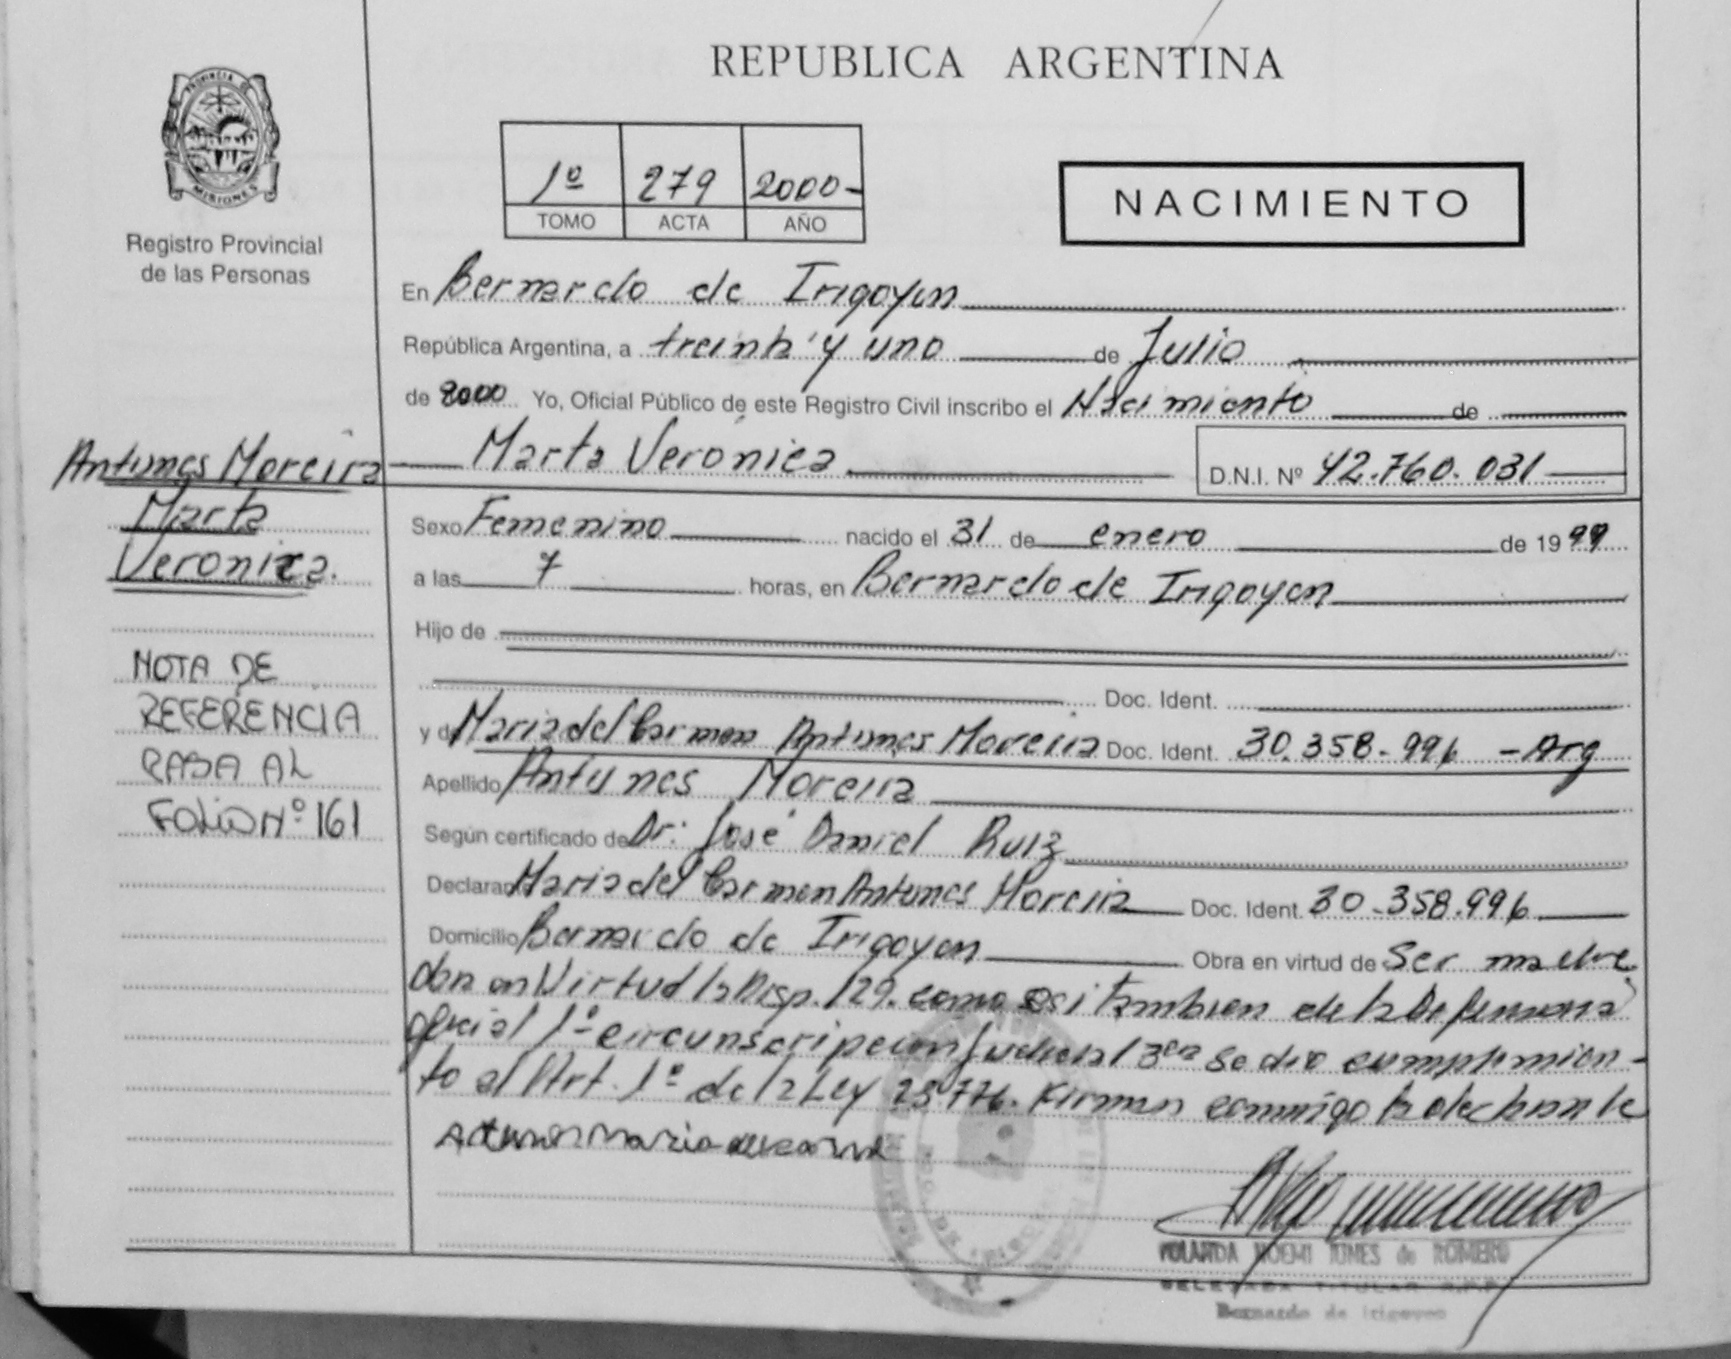 REPUBLICA ARGENTINA
PROVINCIA DE
MISIONES
Registro Provincial
de las Personas
1º 279 2000-
TOMO ACTA AÑO
NACIMIENTO
En Bernardo de Irigoyen
República Argentina, a treinta y uno de Julio
de 2000 Yo, Oficial Público de este Registro Civil inscribo el Nacimiento de
Marta Verónica D.N.I. Nº 42.760.031
Antunes Moreira
Marta
Veronica.
Sexo Femenino nacido el 31 de enero de 1999
a las 7 horas, en Bernardo de Irigoyen
Hijo de
Doc. Ident.
y de Maria del Carmen Antunes Moreira Doc. Ident. 30.358.996 - Arg
Apellido Antunes Moreira
Según certificado de Dr. José Daniel Ruiz
Declarante Maria del Carmen Antunes Moreira Doc. Ident. 30.358.996
Domicilio Bernardo de Irigoyen Obra en virtud de Ser madre
en Virtud la Disp. 129. como asi tambien de la Defensoria
oficial 1º circunscripcion Judicial 3era se dio cumplimien-
to al Art. 1º de la Ley 23776. Firman conmigo la declarante
NOTA DE
REFERENCIA
PASA AL
FOLIO Nº 161
YOLANDA NOEMI de ROMERO
DELEGADA TITULAR
Bernardo de Irigoyen